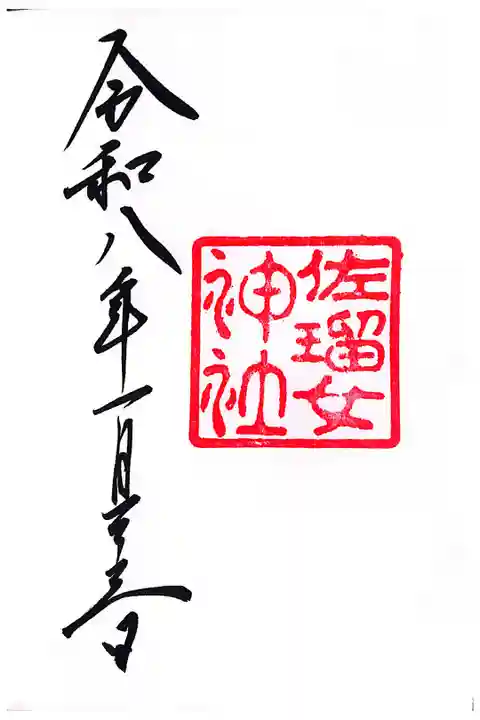 佐瑠女
神社
令和八年一月二十三日